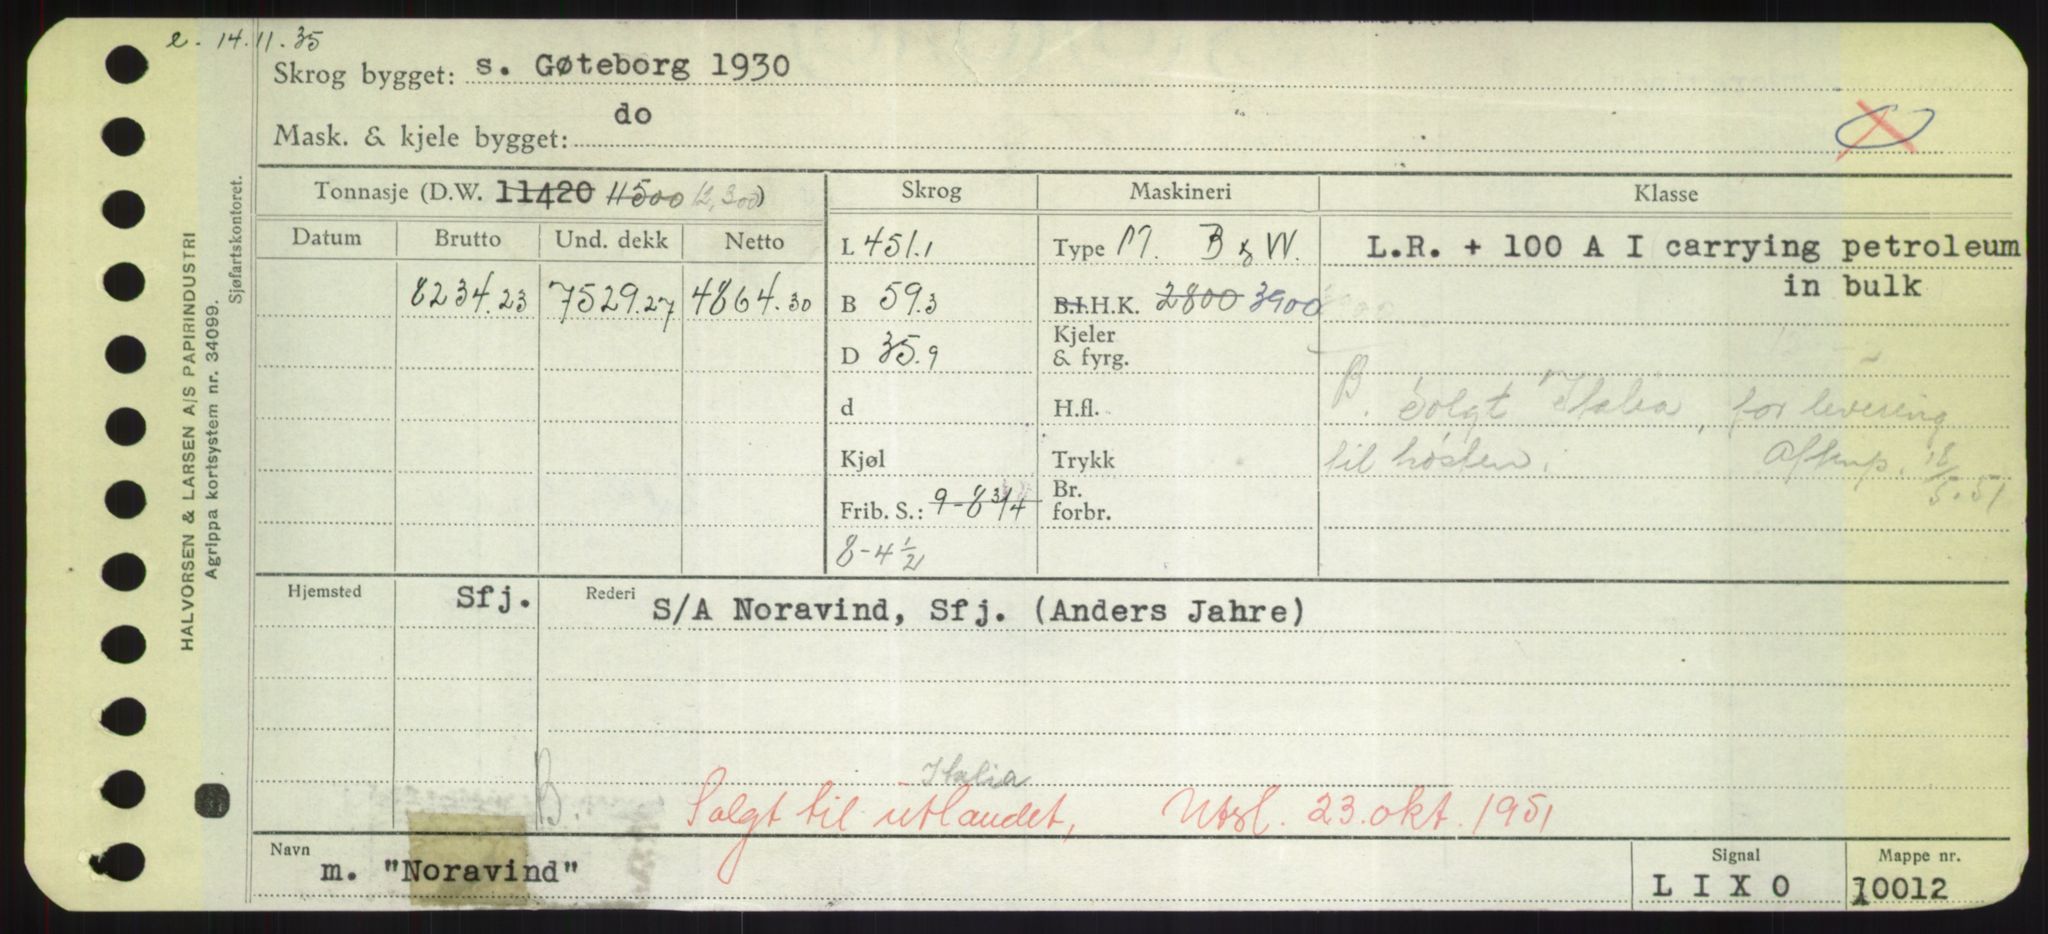 e. 14.11.35
Skrog bygget: s. Gøteborg 1930
Mask. & kjele bygget: do
Tonnasje (D.W. 11420 11500 12,300)
Skrog
Maskineri
Klasse
Datum Brutto Und. dekk Netto
8234.23 7529.27 4864.30
L 451.1
B 59.3
D 35.9
d
Kjøl
Frib. S.: 9-8 3/4
8-4 1/2
Type M. B & W.
B.I.H.K. 2800 3900
Kjeler
& fyrg.
H.fl.
Trykk
Br.
forbr.
L.R. + 100 A I carrying petroleum
in bulk
B. Solgt Italia, for levering
til høsten. Aftenp. 18/5.51
Hjemsted Sfj. Rederi S/A Noravind, Sfj. (Anders Jahre)
Italia
B. Solgt til utlandet, Utsl. 23. okt. 1951
Navn m. "Noravind"
Signal L I X O
Mappe nr. 10012
HALVORSEN & LARSEN A/S PAPIRINDUSTRI
Agrippa kortsystem nr. 34099.
Sjøfartskontoret.